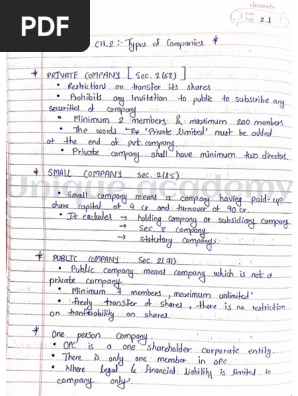 PDF
classmate
2.1
CH.2 :- Types of Companies *
* PRIVATE COMPANY [Sec. 2(68)]
• Restriction on transfer its shares
• Prohibits any invitation to public to subscribe any
securities of company
• Minimum 2 members & maximum 200 members
• The words 'Private limited' must be added
at the end of pvt. company
• Private company shall have minimum two director.
* SMALL COMPANY Sec. 2(85)
• Small company means a company having paid-up
share capital of 4 cr and turnover of 40 cr.
• It excludes → holding company or subsidiary company
→ Sec. 8 company
→ statutory company
* PUBLIC COMPANY Sec. 2(71)
• Public company means company which is not a
private company
• Minimum 7 members, maximum unlimited
• Freely transfer of shares, there is no restriction
on tranferability on shares.
* One person company
• OPC is a one shareholder corporate entity.
• There is only one member in OPC
• Where legal & financial liability is limited to
company only.